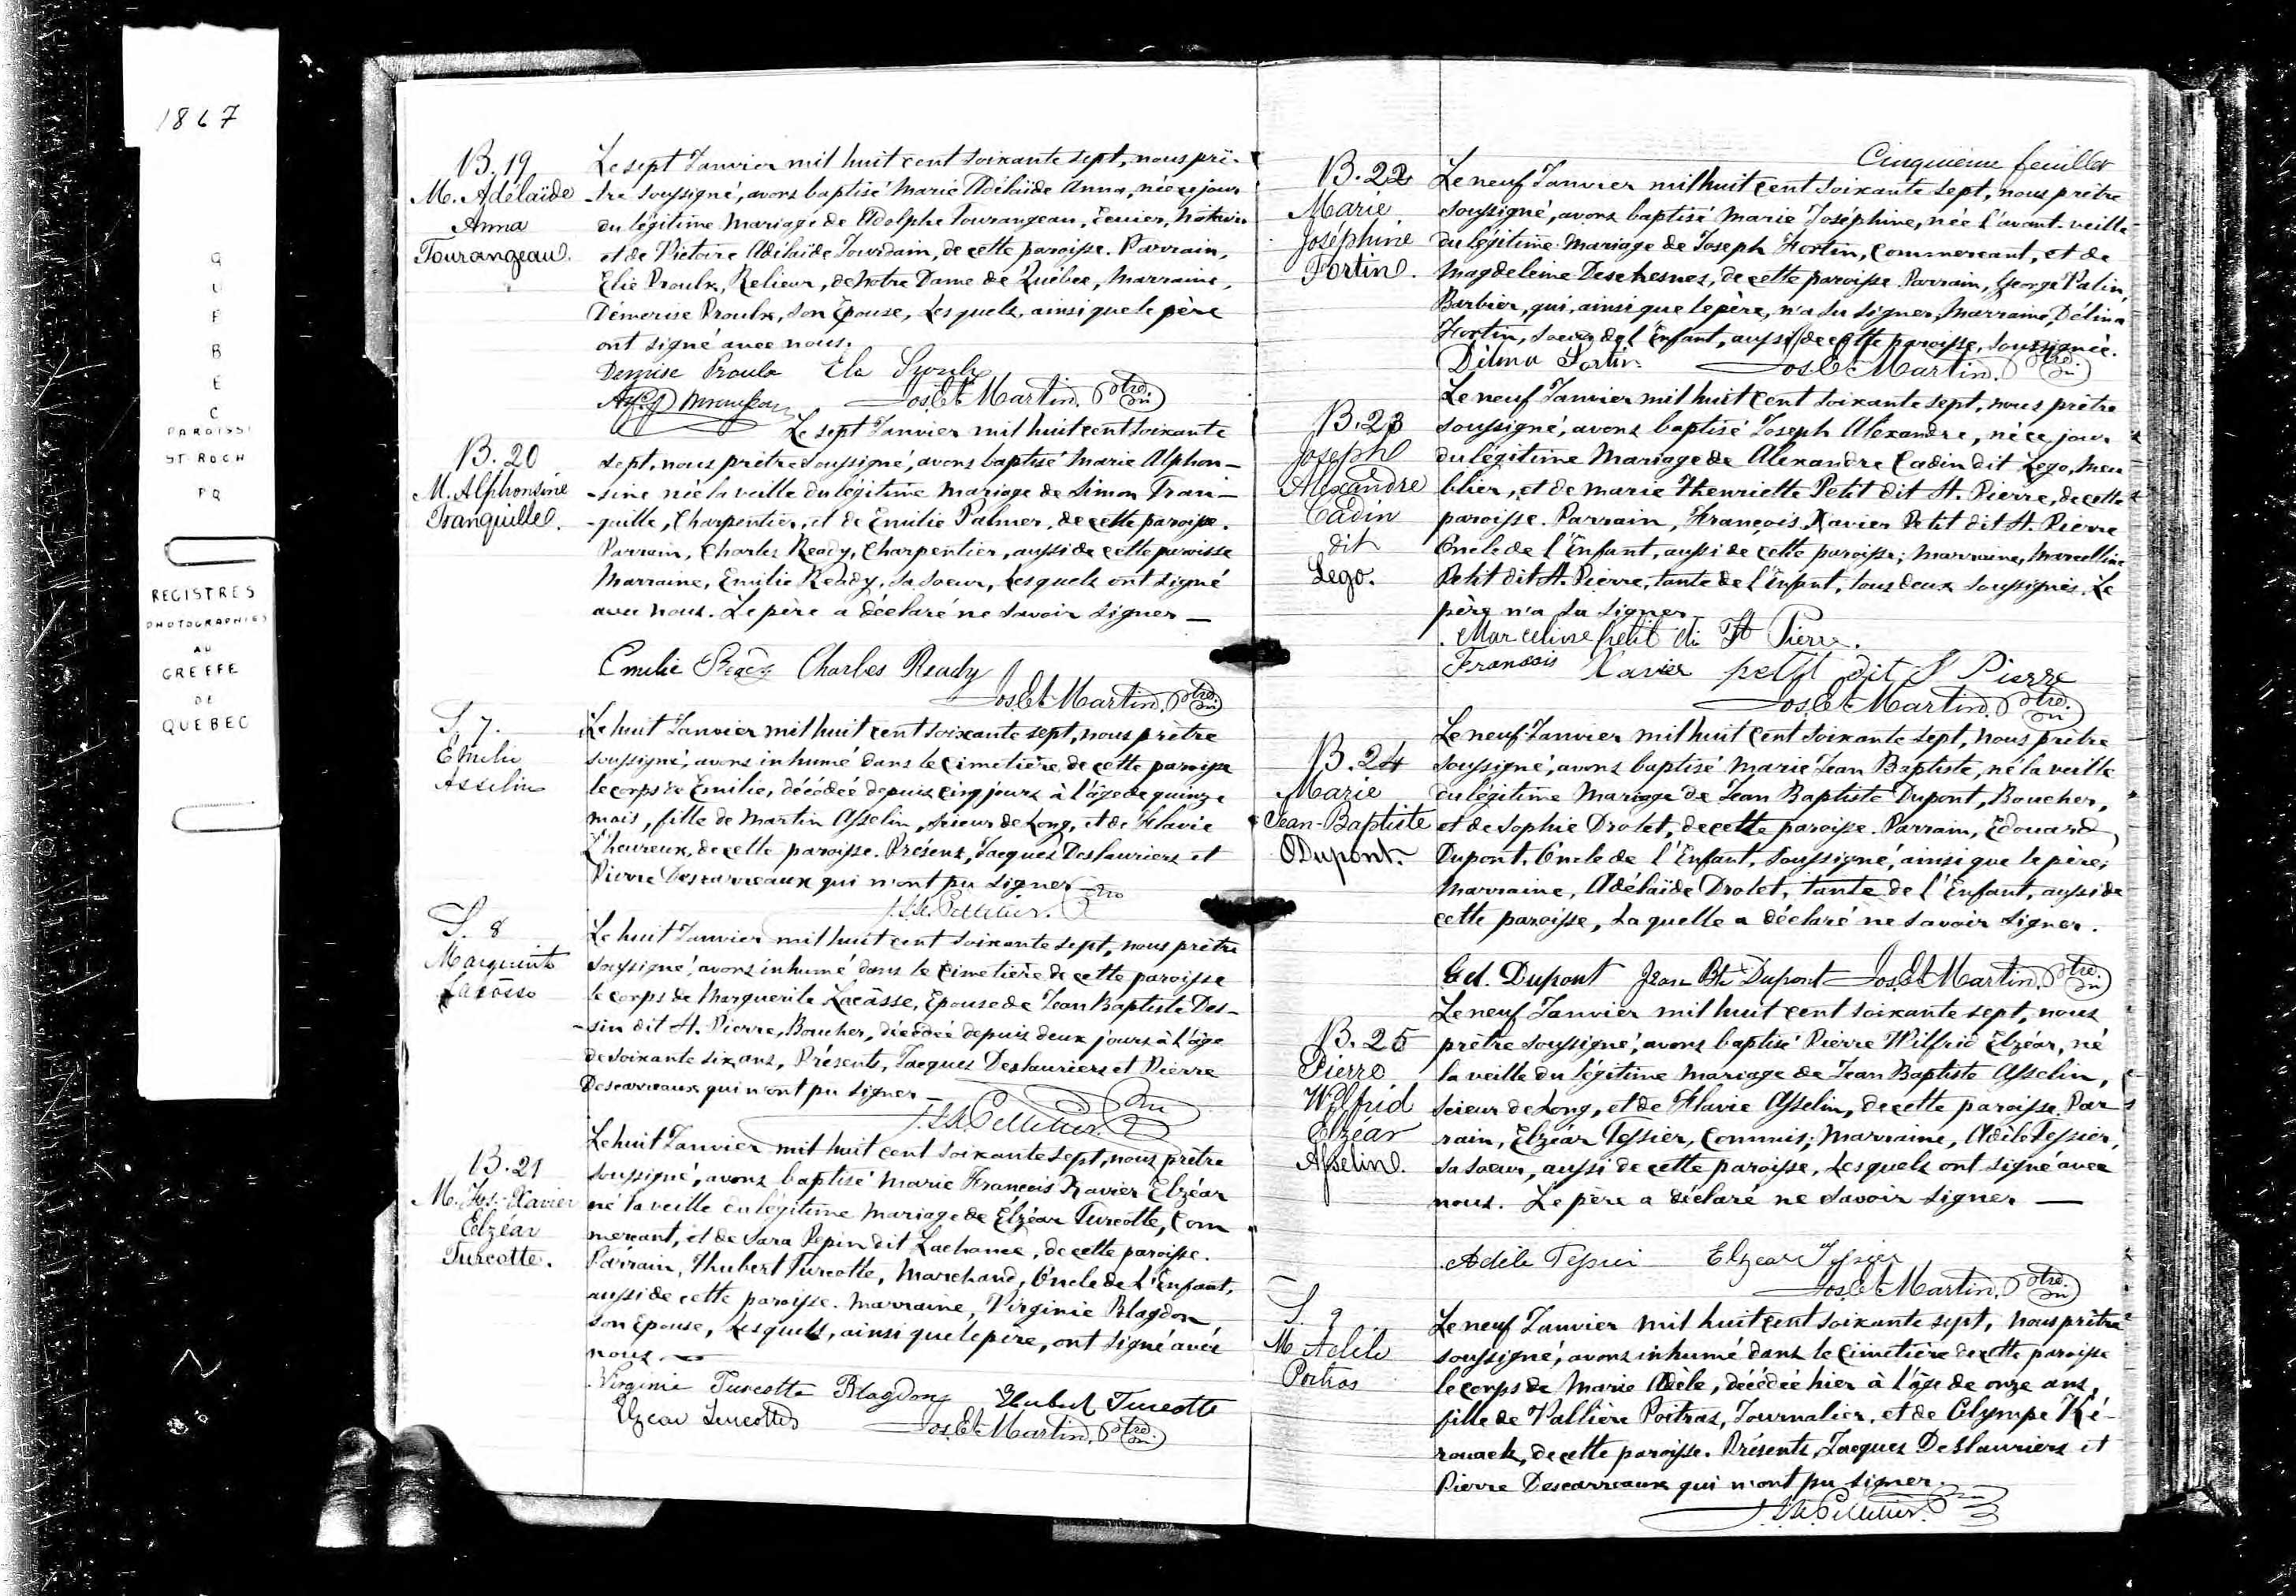 1867
QUÉBEC
PAROISSE
ST-ROCH
PQ
REGISTRES
PHOTOGRAPHIÉS
AU
GREFFE
DE
QUEBEC
B. 19
M. Adélaïde
Anna
Tourangeau.
Le sept Janvier mil huit cent soixante sept, nous prê-
tre soussigné, avons baptisé Marie Adélaïde Anna, née ce jour
du légitime mariage de Adolphe Tourangeau, Ecuier, Notaire
et de Victoire Adélaïde Jourdain, de cette paroisse. Parrain,
Elie Proulx, Relieur, de Notre Dame de Québec, Marraine,
Démerise Proulx, son Epouse, Lesquels, ainsi que le père
ont signé avec nous.
Demise Proulx
Jos. Et Martin. Ptre.
B. 20
M. Alphonsine
Tranquille.
Le sept Janvier mil huit cent soixante
sept, nous prêtre soussigné, avons baptisé Marie Alphon-
-sine née la veille du légitime mariage de Simon Tran-
-quille, Charpentier, et de Emilie Palmer, de cette paroisse.
Parrain, Charles Ready, Charpentier, aussi de cette paroisse
Marraine, Emilie Ready, sa soeur, Lesquels ont signé
avec nous. Le père a déclaré ne savoir signer —
Emilie Ready Charles Ready
Jos. Et Martin. Ptre.
S. 7.
Émilie
Asselin
Le huit Janvier mil huit cent soixante sept, nous prêtre
soussigné, avons inhumé dans le cimetière de cette paroisse
le corps de Emilie, décédée depuis cinq jours à l'âge de quinze
mois, fille de Martin Asselin, Scieur de Long, et de Flavie
L'heureux, de cette paroisse. Présens, Jacques Deslauriers et
Pierre Descarreaux qui n'ont pu signer
Pelletier.
S. 8
Marguerite
Lacasse
Le huit Janvier mil huit cent soixante sept, nous prêtre
soussigné, avons inhumé dans le cimetière de cette paroisse
le corps de Marguerite Lacâsse, Epouse de Jean Baptiste Des-
-sin dit St. Pierre, Boucher, décédée depuis deux jours à l'âge
de soixante six ans, Présents, Jacques Deslauriers et Pierre
Descarreaux qui n'ont pu signer —
Pelletier.
B. 21
M. Frs.-Xavier
Elzéar
Turcotte.
Le huit Janvier mil huit cent soixante sept, nous prêtre
soussigné, avons baptisé Marie François Xavier Elzéar
né la veille du légitime mariage de Elzéar Turcotte, Com
mercant, et de Sara Pepin dit Lachance, de cette paroisse.
Parrain, Hubert Turcotte, Marchand, Oncle de L'Enfant,
aussi de cette paroisse. Marraine, Virginie Blagdon,
son Epouse, Lesquels, ainsi que le père, ont signé avec
nous.
Virginie Turcotte Blagdon Hubert Turcotte
Elzear Turcotte Jos. Et Martin. Ptre.
Cinquième feuillet
B. 22
Marie
Joséphine
Fortin.
Le neuf Janvier mil huit cent soixante sept, nous prêtre
soussigné, avons baptisé Marie Joséphine, née l'avant-veille
du légitime mariage de Joseph Fortin, Commercant, et de
Magdeleine Deschesnes, de cette paroisse. Parrain, George Patin,
Barbier, qui, ainsi que le père, n'a su signer, Marraine, Délina
Fortin, soeur de l'Enfant, aussi de cette paroisse, soussignée.
Délina Fortin Jos. Et Martin. Ptre.
B. 23
Joseph
Alexandre
Cadin
dit
Lego.
Le neuf Janvier mil huit cent soixante sept, nous prêtre
soussigné, avons baptisé Joseph Alexandre, né ce jour
du légitime Mariage de Alexandre Cadin dit Lego, Meu
blier, et de Marie Henriette Petit dit St. Pierre, de cette
paroisse. Parrain, François Xavier Petit dit St. Pierre
Oncle de l'Enfant, aussi de cette paroisse; Marraine, Marcelline
Petit dit St. Pierre, tante de l'Enfant, tous deux soussignés. Le
père n'a su signer
Marceline Petit di St Pierre.
Francois Xavier petit dit S Pierre
Jos. Et Martin. Ptre.
B. 24
Marie
Jean-Baptiste
Dupont.
Le neuf Janvier mil huit cent soixante sept, nous prêtre
soussigné, avons baptisé Marie Jean Baptiste, né la veille
du légitime Mariage de Jean Baptiste Dupont, Boucher,
et de Sophie Drolet, de cette paroisse. Parrain, Edouard
Dupont, Oncle de l'Enfant, soussigné, ainsi que le père;
Marraine, Adélaïde Drolet, tante de l'Enfant, aussi de
cette paroisse, Laquelle a déclaré ne savoir signer.
Ed. Dupont Jean Bte Dupont Jos. Et Martin. Ptre.
B. 25
Pierre
Wilfrid
Elzéar
Asselin.
Le neuf Janvier mil huit cent soixante sept, nous
prêtre soussigné, avons baptisé Pierre Wilfrid Elzéar, né
la veille du légitime mariage de Jean Baptiste Asselin,
Scieur de Long, et de Flavie Asselin, de cette paroisse. Par
rain, Elzéar Tessier, Commis; Marraine, Adèle Tessier,
sa soeur, aussi de cette paroisse, Lesquels ont signé avec
nous. Le père a déclaré ne savoir signer —
Adèle Tessier Elzear Tessier
Jos. Et Martin. Ptre.
S. 9
M Adèle
Poitras
Le neuf Janvier mil huit cent soixante sept, nous prêtre
soussigné, avons inhumé dans le cimetière de cette paroisse
le corps de Marie Adèle, décédée hier à l'âge de onze ans,
fille de Vallière Poitras, Journalier, et de Olympe Ké-
rouack, de cette paroisse. Présents, Jacques Deslauriers et
Pierre Descarreaux qui n'ont pu signer.
Pelletier.